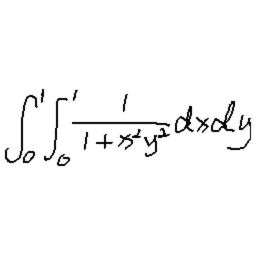 ∫₀¹ ∫₀¹ 1/(1+x²y²) dxdy